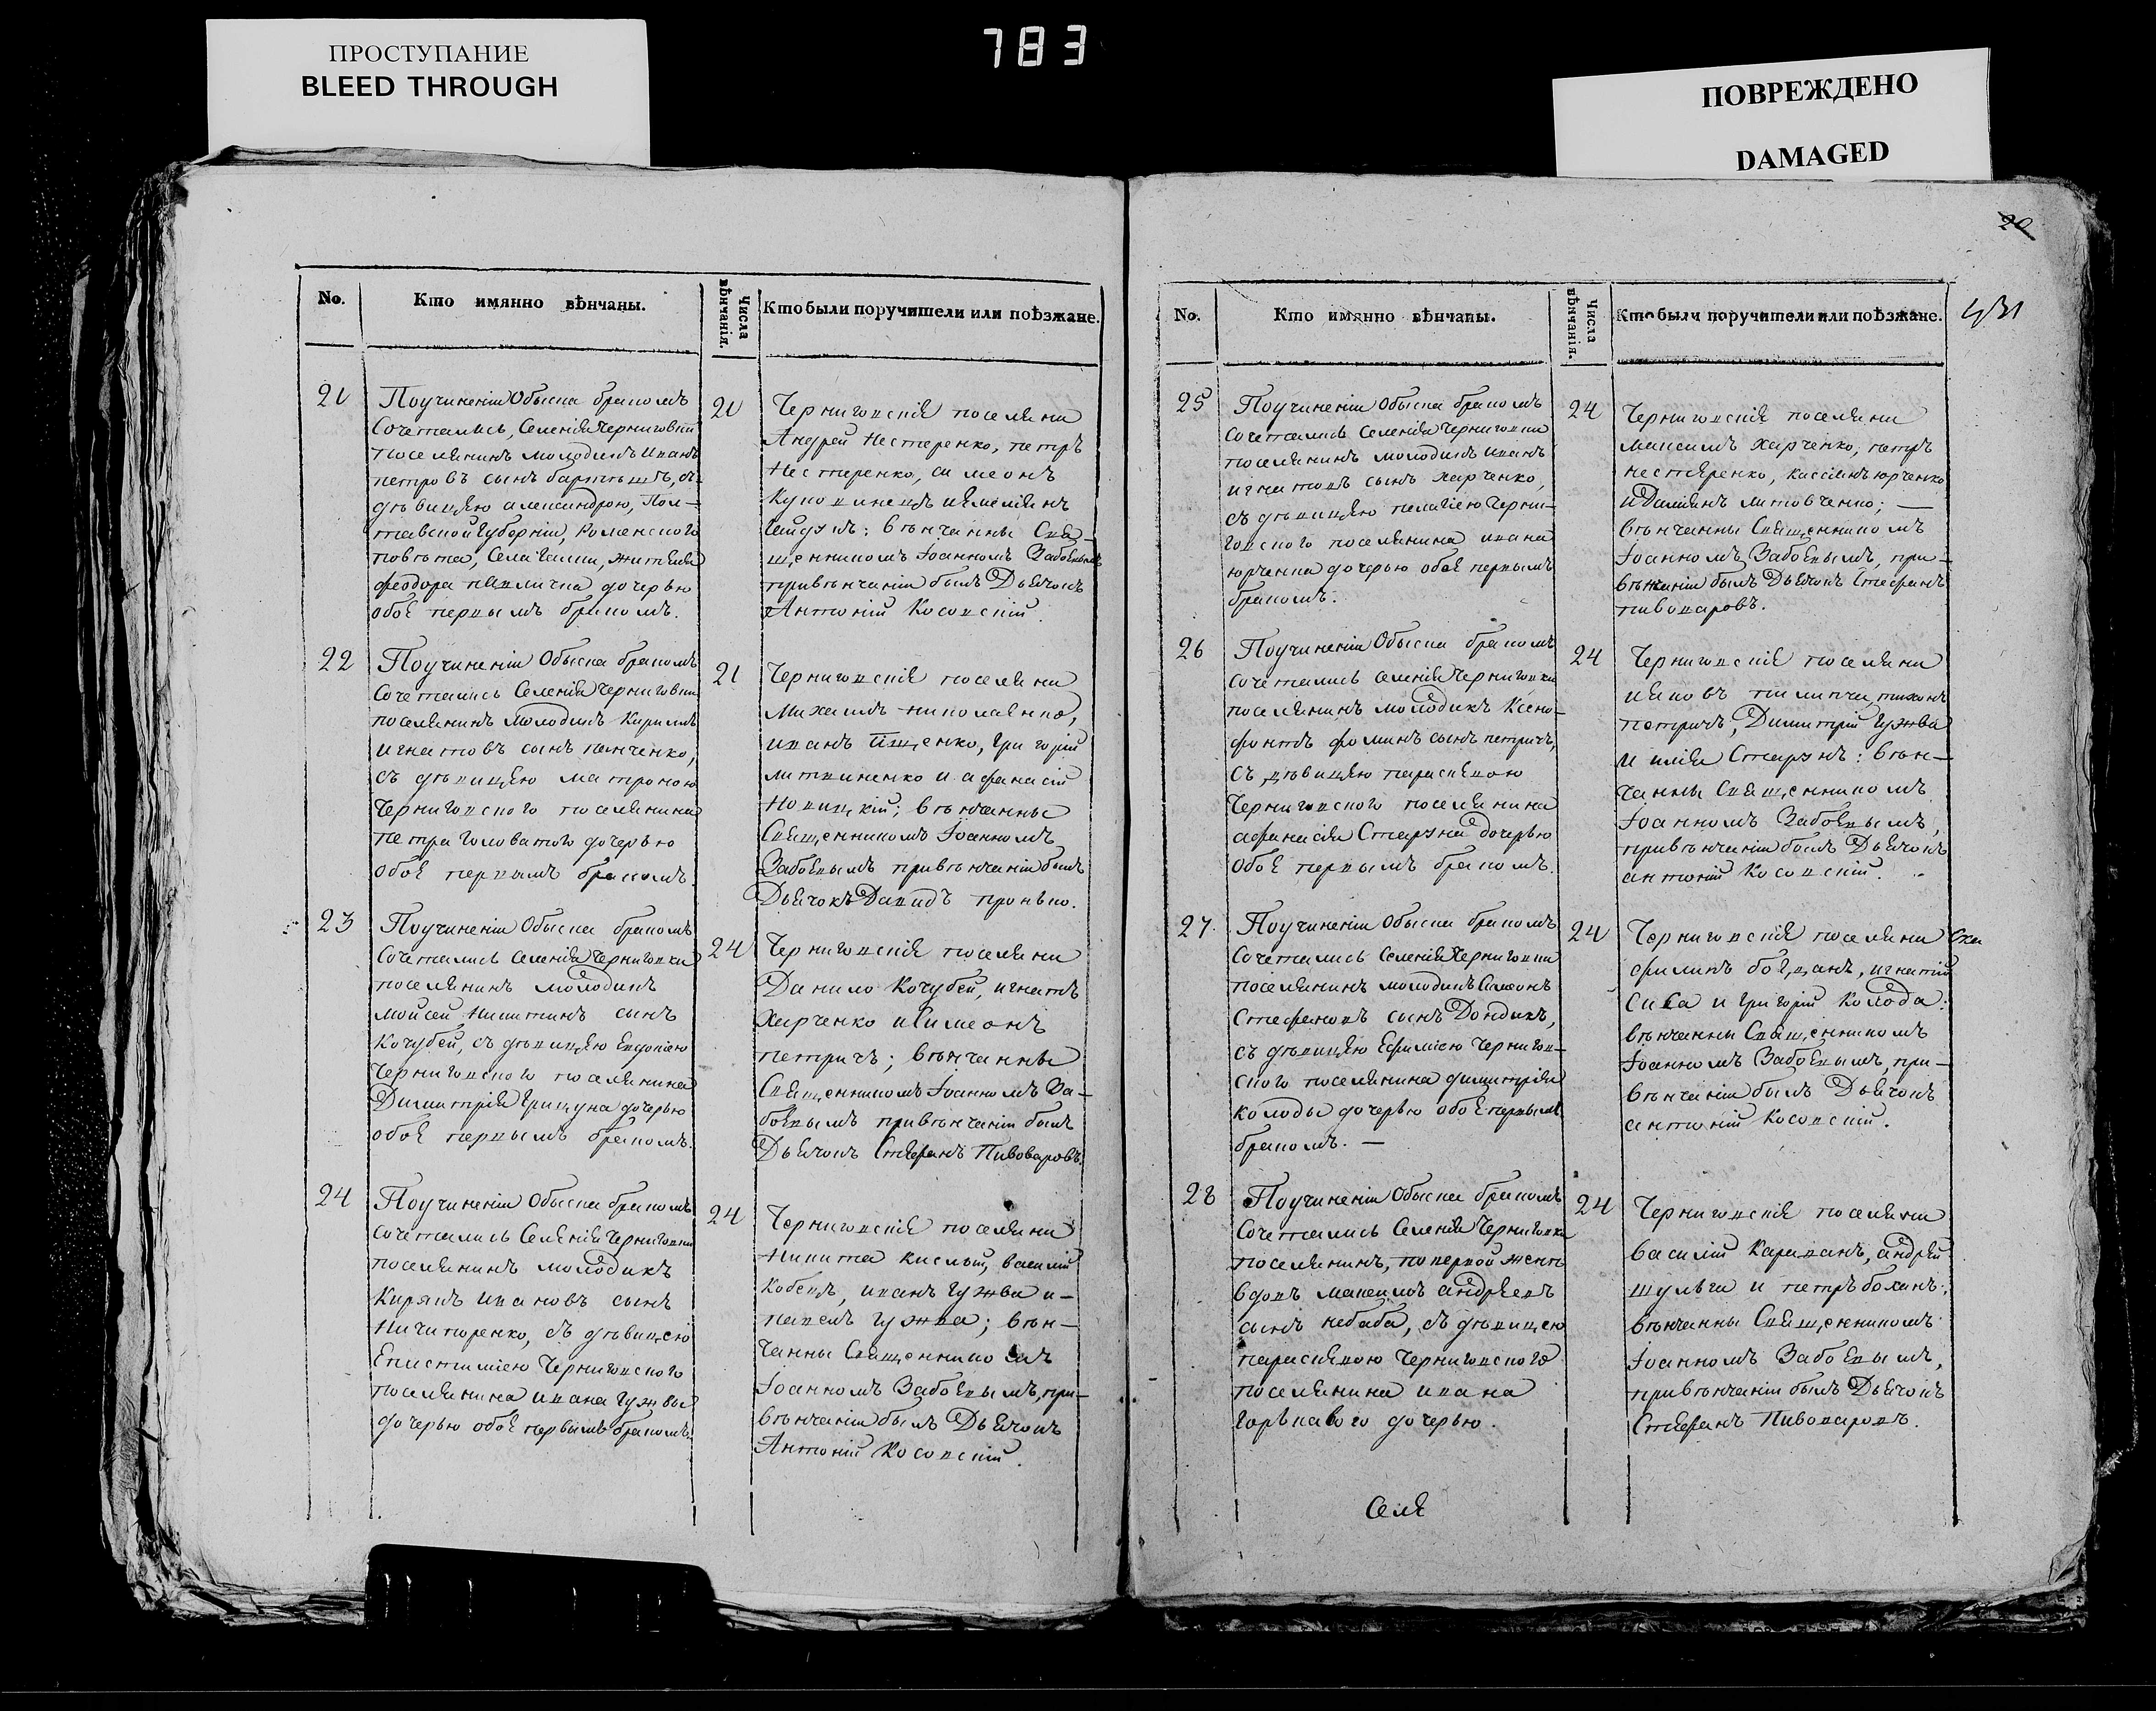 ПРОСТУПАНИЕ
BLEED THROUGH
783
ПОВРЕЖДЕНО
DAMAGED
20
431
No.
Кто имянно вѣнчаны.
Числа вѣнчанія.
Кто были поручители или поѣзжане.
21
Поучиненіи Обыска бракомъ
Сочетались, Селенія Черниговки
поселянинъ молодикъ Иванъ
петровъ сынъ бартошъ, съ
дѣвицею александрою, Пол-
тавской Губерніи, Роменского
повѣта, Села жителя
феодора павлика дочерью
обоє первымъ бракомъ.
21
Черниговскіє поселяни
Андрей Нестеренко, петръ
Нестеренко, симеонъ
и емеліянъ
вѣнчанны Свя-
щенникомъ Іоанномъ Забоєвымъ
привѣнчаніи былъ Дьячокъ
Антоній Косовскій.
22
Поучиненіи Обыска бракомъ
сочетались Селенія Черниговки
поселянинъ молодикъ Кирилъ
игнатовъ сынъ панченко,
съ дѣвицею матроною
Черниговского поселянина
петра головатого дочерью
обоє первымъ бракомъ.
21
Черниговскіє поселяни
Михаилъ николаєнко,
иванъ Ищенко, григорій
литвиненко и афанасій
Новицкій; вѣнчанны
Священникомъ Іоанномъ
Забоєвымъ привѣнчаніи былъ
Дьячокъ Давидъ пронько.
23
Поучиненіи Обыска бракомъ
Сочетались Селенія Черниговки
поселянинъ молодикъ
мойсей Никитинъ сынъ
Кочубей, съ дѣвицею Евдокією
Черниговского поселянина
Димитрія Грицуна дочерью
обоє первымъ бракомъ.
24
Черниговскіє поселяни
Данило Кочубей, игнатъ
Харченко и Симеонъ
петричъ; вѣнчанны
Священникомъ Іоанномъ За-
боєвымъ привѣнчаніи былъ
Дьячокъ Стефанъ Пивоваровъ.
24
Поучиненіи Обыска бракомъ
сочетались Селенія Черниговки
поселянинъ молодикъ
Кирякъ ивановъ сынъ
Ничипоренко, съ дѣвицею
Епистимією Черниговского
поселянина ивана Гужвы
дочерью обоє первымъ бракомъ.
24
Черниговскіє поселяни
Никита кислый, василій
Кобецъ, иванъ Гужва и-
павелъ гужва; вѣн-
чанны Священникомъ
Іоанномъ Забоєвымъ, при-
вѣнчаніи былъ Дьячокъ
Антоній Косовскій.
No.
Кто имянно вѣнчаны.
Числа вѣнчанія.
Кто были поручители или поѣзжане.
25
Поучиненіи Обыска бракомъ
сочетались селенія Черниговки
поселянинъ молодикъ иванъ
игнатовъ сынъ харченко,
съ дѣвицею пелагією Черни-
говского поселянина ивана
юрченка дочерью обоє первымъ
бракомъ.
24
Черниговскіє поселяни
максимъ харченко, петръ
нестеренко, Кассіянъ юрченко
и Даміянъ литовченко; —
вѣнчанны Священникомъ
Іоанномъ Забоєвымъ, при-
вѣнчаніи былъ Дьячокъ Стефанъ
пивоваровъ.
26
Поучиненіи Обыска бракомъ
сочетались селенія Черниговки
поселянинъ молодикъ Ксено-
фонтъ фоминъ сынъ петричъ,
съ дѣвицею параскевою
Черниговского поселянина
афанасія Старуна дочерью
Обоє первымъ бракомъ.
24
Черниговскіє поселяни
яковъ пилипча, тихонъ
петричъ, Димитрій Гужва
и илія Старунъ: вѣн-
чанны Священникомъ
Іоанномъ Забоєвымъ,
привѣнчаніи былъ Дьячокъ
антоній Косовскій.
27.
Поучиненіи Обыска бракомъ
Сочетались Селенія Черниговки
поселянинъ молодикъ Симеонъ
Стефановъ сынъ Дондикъ,
съ дѣвицею Ефимією Чернигов-
ского поселянина димитрія
колоды дочерью обоє первымъ
бракомъ. —
24
Черниговскіє поселяни
филипъ богданъ, игнатій
Сиса и григорій Колода:
вѣнчанны Священникомъ
Іоанномъ Забоєвымъ, при-
вѣнчаніи былъ Дьячокъ
антоній Косовскій.
28
Поучиненіи Обыска бракомъ
Сочетались Селенія Черниговки
поселянинъ, попервой женѣ
вдовъ максимъ андреевъ
сынъ небаба, съ дѣвицею
параскевою Черниговского
поселянина ивана
горькавого дочерью.
24
Черниговскіє поселяни
василій Караванъ, андрей
шульга и петръ боханъ:
вѣнчанны Священникомъ
Іоанномъ Забоєвымъ,
привѣнчаніи былъ Дьячокъ
Стефанъ Пивоваровъ.
Селє